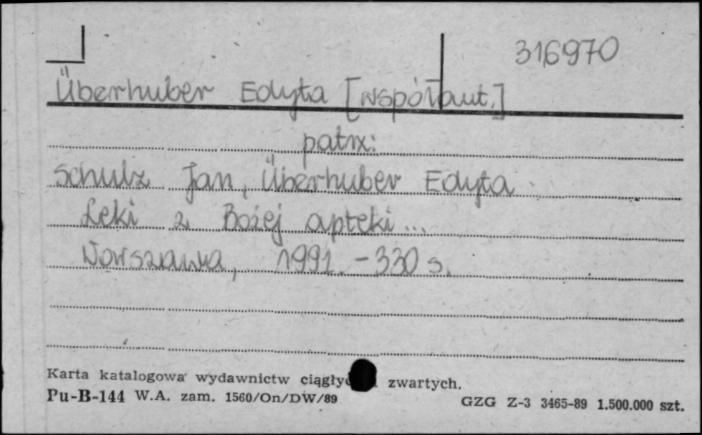 316970
Überhuber Edyta [współaut.]
patrz:
Schulz Jan, Überhuber Edyta
Leki z Bożej apteki...
Warszawa, 1991. - 330 s.
Karta katalogowa wydawnictw zwartych.
Pu-B-144 W.A. zam. 1560/On/DW/89 GZG Z-3 3465-89 1.500.000 szt.